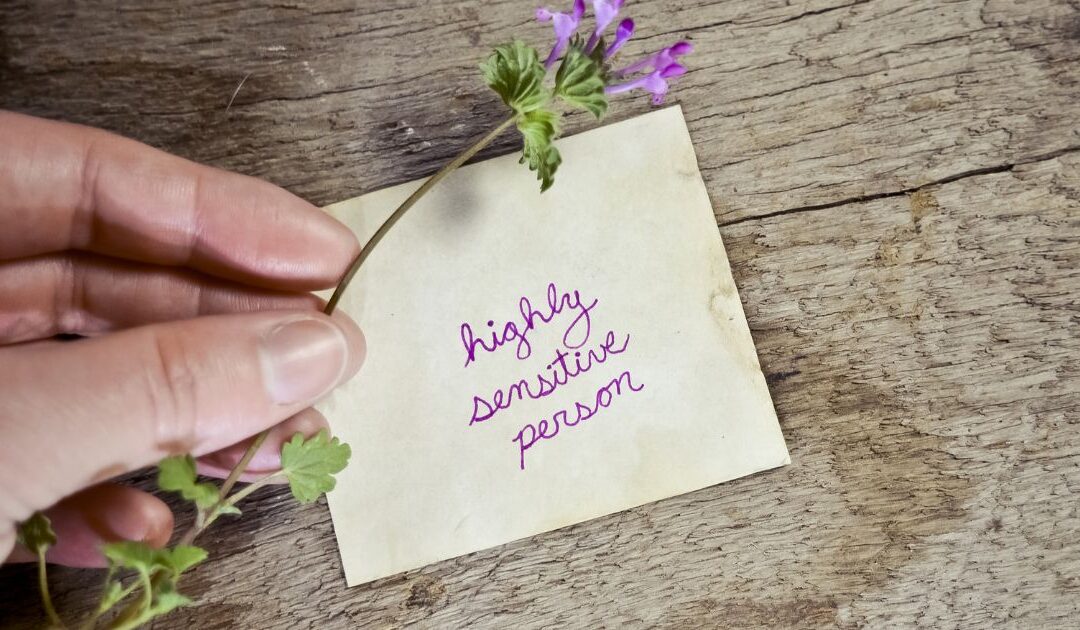 highly
sensitive
person